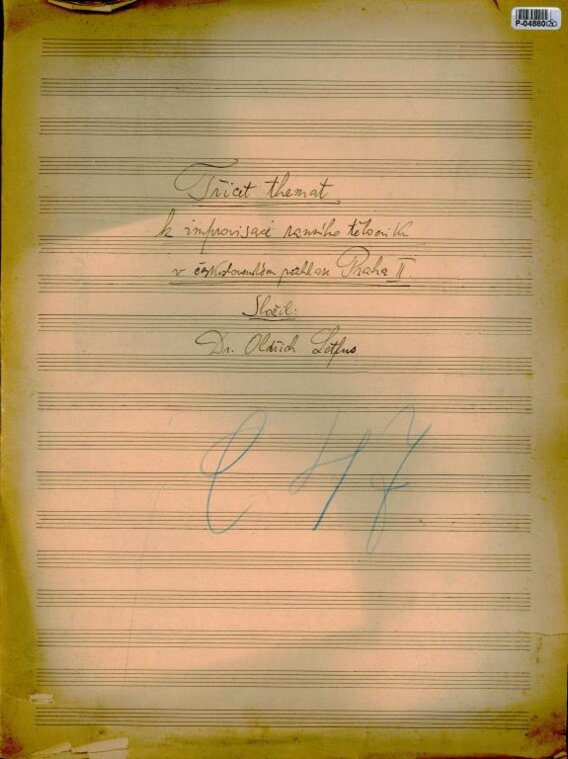 P-04880
Třicet themat
k improvisaci ranního tělocviku
v československém rozhlase Praha II.
Složil:
Dr. Oldřich Letfus
C 47